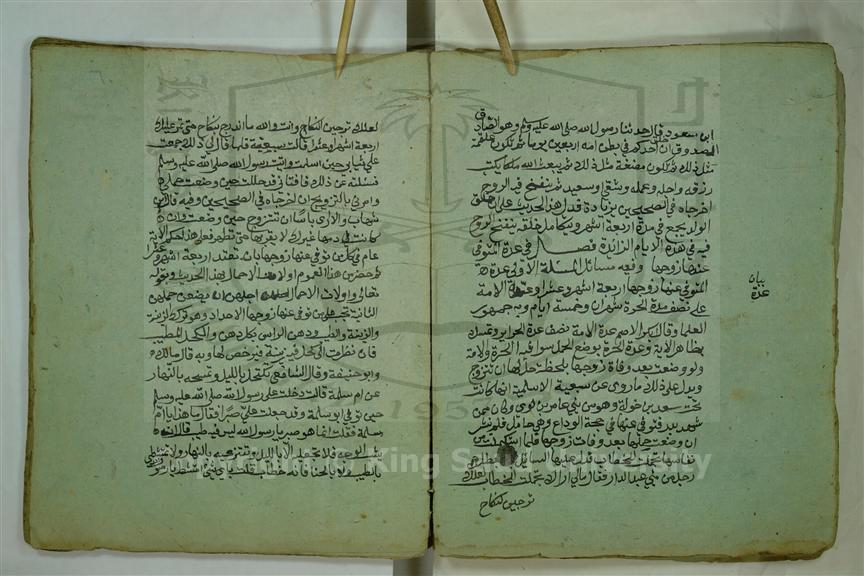 ابن سعود قال حدثنا رسول الله صلى الله عليه وسلم وهو الصادق
المصدوق ان خلق احدكم في بطن امه اربعين يوما ثم تكون علقة
مثل ذلك ثم تكون مضغة مثل ذلك ثم يبعث الله ملكا يكتب
رزقه واجله وعمله وشقي او سعيد ثم ينفخ فيه الروح
اخرجاه في الصحيحين بزيادة فدل هذا الحديث على ان خلق
الولد يجمع في مدة اربعة اشهر ويتكامل خلقه بنفخ الروح
فيه في هذه الايام الزائدة فصل في عدة المتوفى
عنها زوجها وفيه مسائل المسئلة الاولى عدة
المتوفى عنها زوجها اربعة اشهر وعشرا وعدة الامة
على نصف عدة الحرة شهران وخمسة ايام وبه جمهور
العلما وقال ابو بكر الاصم عدة الامة نصف عدة الحراير وتمسك
بظاهر الاية وعدة الحرة بوضع الحمل سوا فيه الحرة والامة
ولو وضعت بعد وفاة زوجها بلحظة حل لها ان تتزوج
ويدل على ذلك ما روي عن سبيعة الاسلمية انها كانت
تحت سعد بن خولة وهو من بني عامر بن لوي وكان ممن
شهد بدر فتوفي عنها في حجة الوداع وهي حامل فلم تنشب
ان وضعت حملها بعد وفات زوجها فلما
نفاسها تجملت للخطاب فدخل عليها السنابل
رجل من بني عبد الدار فقال مالي اراك تجملت للخطاب لعلك
ترجين النكاح
بيان
عدة
لعلك ترجين النكاح وانت والله ما انت بنكاح حتى تمر عليك
اربعة اشهر وعشرا قالت سبيعة فلما قال لي ذلك جمعت
علي ثيابي حين امسيت واتيت رسول الله صلى الله عليه وسلم
فسئلته عن ذلك فافتاني قد حللت حين وضعت حملي
وامرني بالتزويج ان اخرجاه في الصحيحين وفيه قال ابن
شهاب ولا ارى باسا ان تتزوج حين وضعت وان
كانت في دمها غير ان لا يقربها حتى تطهر فعلى هذا حكم الاية
عام في كل من توفي عنها زوجها بان تعتد اربعة اشهر وعشر
ثم خص من هذا العموم اولات الاحمال بهذا الحديث وبقوله
تعالى واولات الاحمال اجلهن ان يضعن حملهن
الثانية تجب على من توفي عنها زوجها الاحداد وهو ترك الزينة
والزينة والطيب ودهن الراس بكل دهن والكحل المطيب
فان اضطرت الى كحل فيه زينة فيرخص لها وبه قال مالك
وابو حنيفة وقال الشافعي تكتحل بالليل وتمسحه بالنهار
عن ام سلمة قالت دخلت على رسول الله صلى الله عليه وسلم
حين توفي ابو سلمة وقد جعلت علي صبرا فقال ما هذا يا ام
سلمة فقلت انما هو صبر يا رسول الله ليس فيه طيب قال انه
يشب الوجه فلا تجعليه الا بالليل وتنزعيه بالنهار ولا تمتشطي
بالطيب ولا بالحنا فانه خضاب قلت باي شئ امتشط يا رسول
Copyright © King Saud University
1957